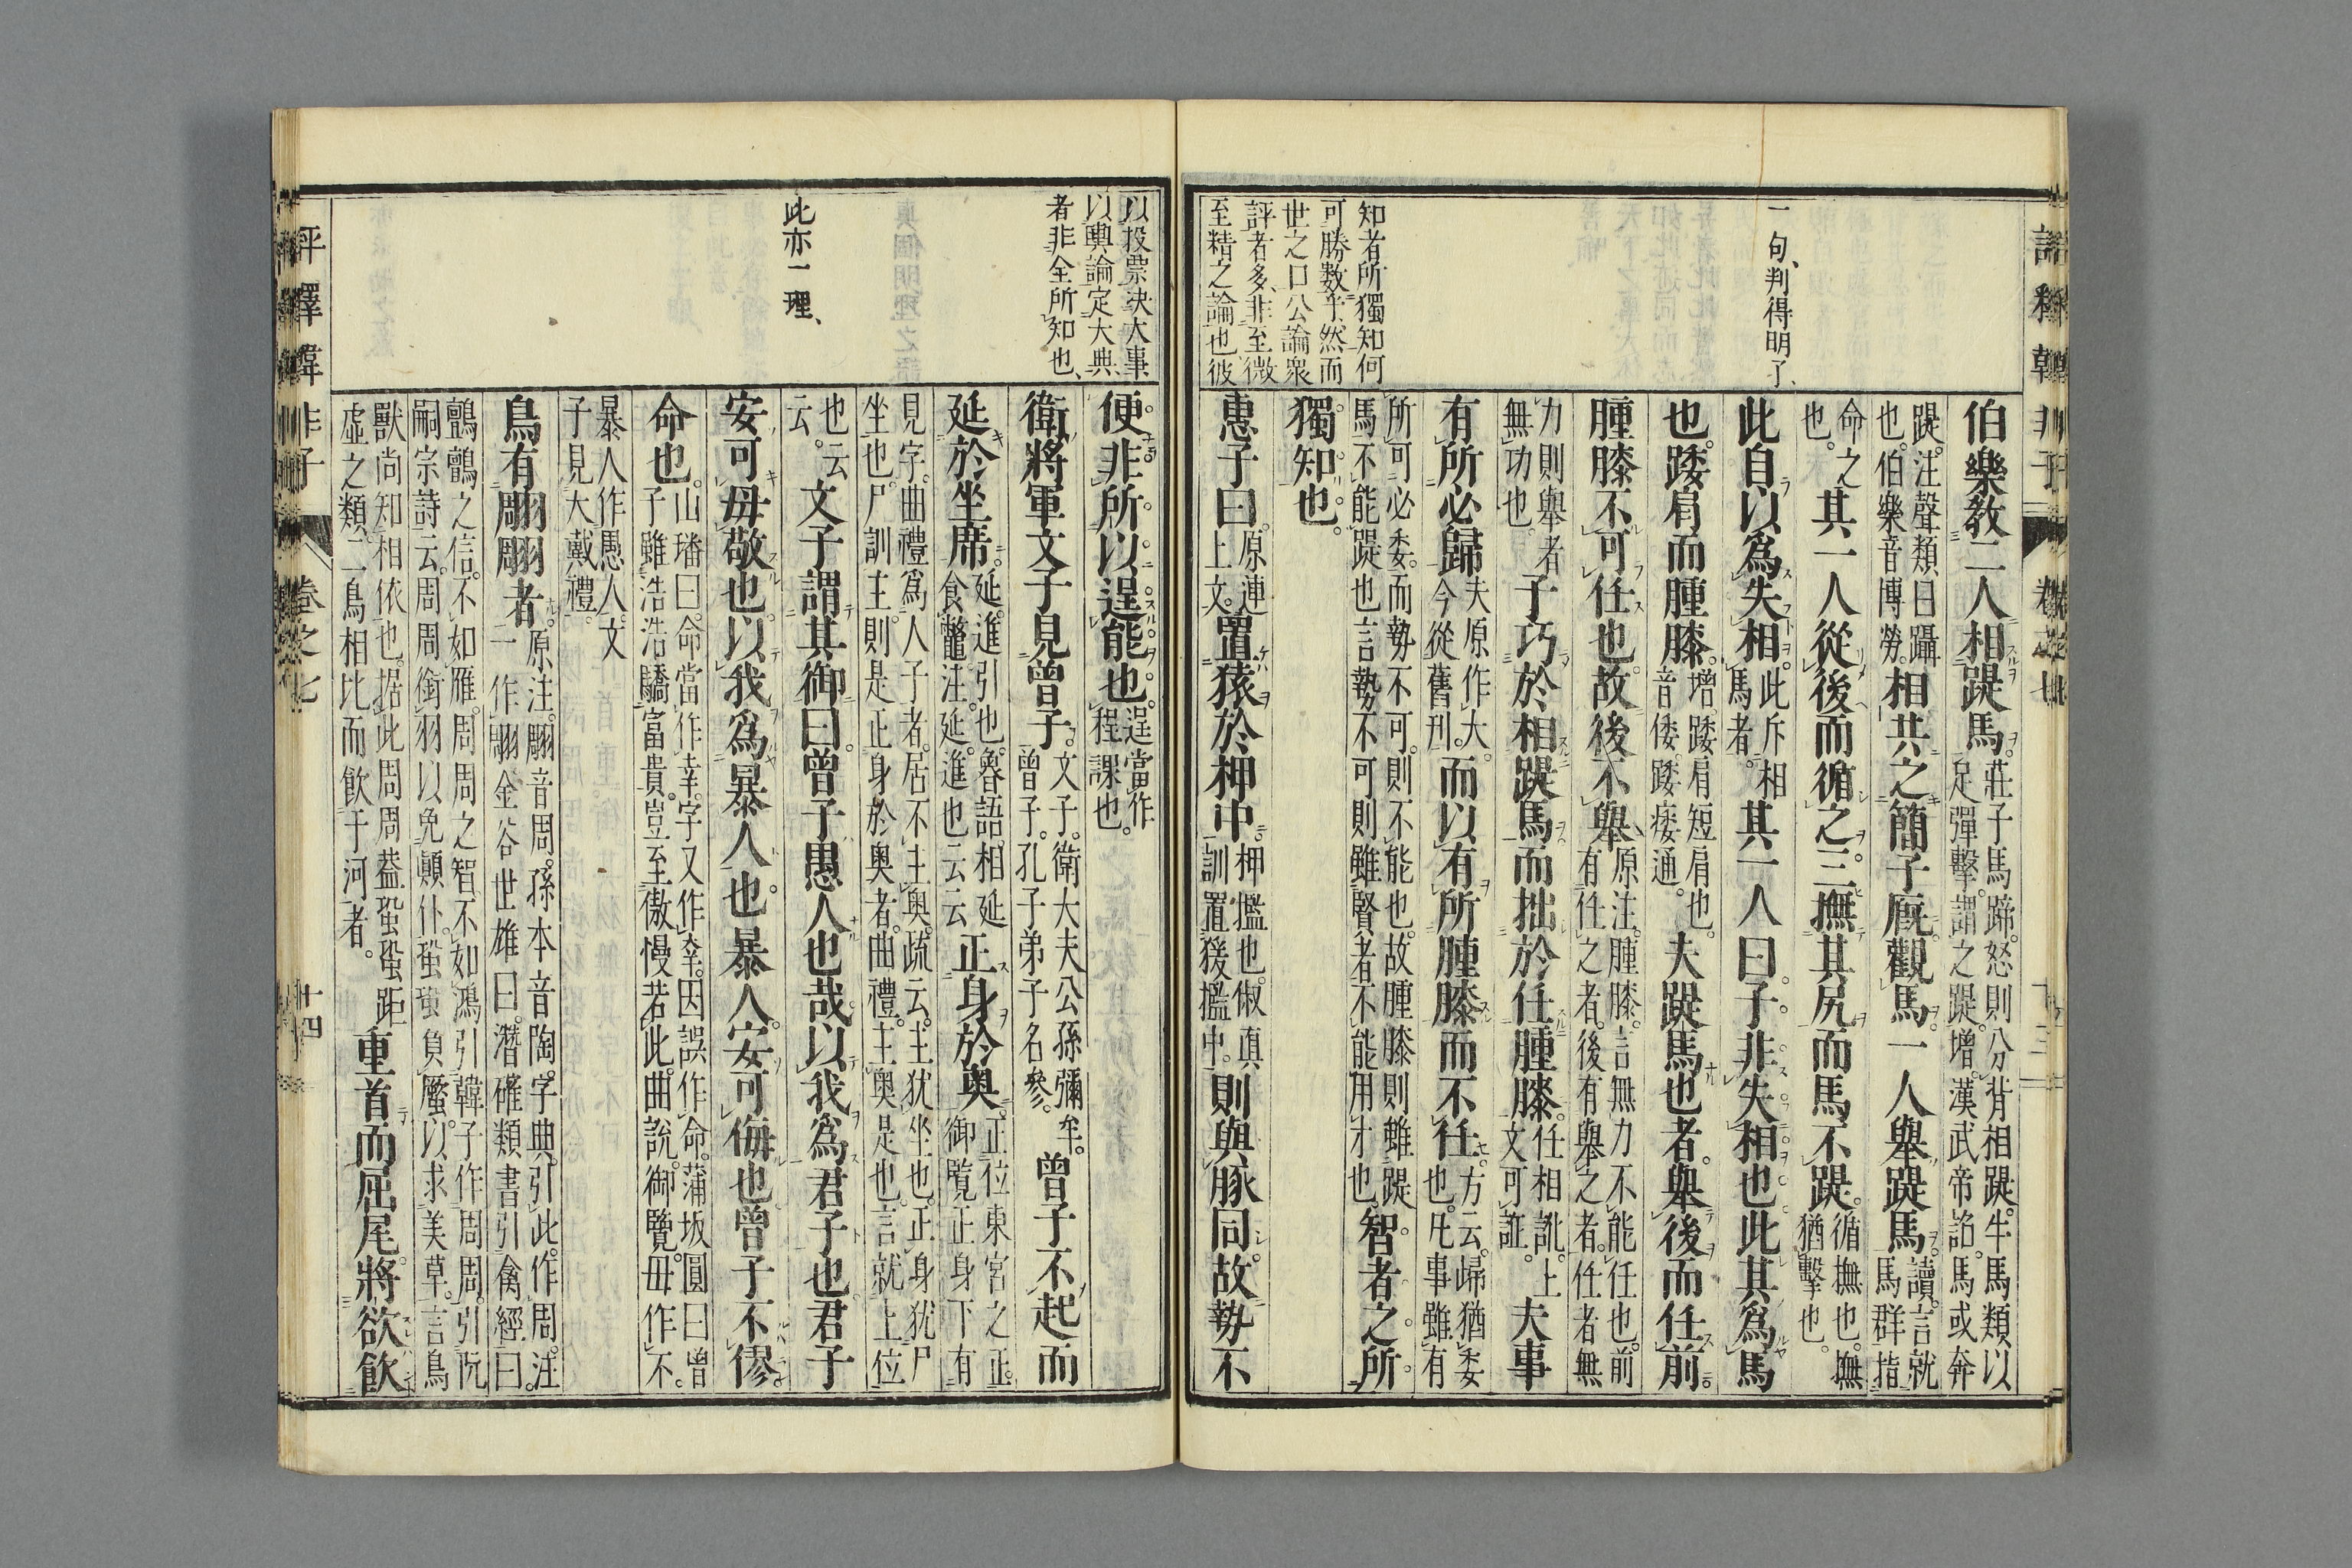 一句、判得明了、
知者所獨知何
可勝數乎然而
世之口公論衆
評者多、非至微
至精之論也彼
伯樂敎二人相踶馬。莊子馬蹄。怒則分背相踶。牛馬類以
足彈擊。謂之踶。增。漢武帝詔。馬或奔
踶。注聲類曰躡
也。伯樂音博勞。相共之簡子廐觀馬。一人舉踶馬。讀。言就
馬群指
命之
也。其一人從後而循之。三撫其尻而馬不踶。循撫也。撫
猶擊也。
此自以爲失相。此斥相
馬者。其一人曰。子非失相也此其爲馬
也。踒肩而腫膝。增。踒肩短肩也。
音倭。踒痿通。夫踶馬也者。舉後而任前。
腫膝不可任也。故後不舉、原注。腫膝。言無力不能任也。前
有任之者。後有舉之者。任者無
力則舉者
無功也。子巧於相踶馬而拙於任腫膝。任相訛。上
文可証。夫事
有所必歸夫原作大。
今從舊刊。而以有所腫膝而不任。方云。歸猶委
也。凡事雖有
所可必委。而勢不可。則不能也。故腫膝則雖踶
馬不能踶也言勢不可則雖賢者不能用才也。智者之所
獨知也。
惠子曰。原連
上文。置猿於柙中。柙檻也。俶眞
訓置猨檻中。則與豚同。故勢不
以投票決大事
以輿論定大典
者非全所知也、
此亦一理、
便非所以逞能也。逞當作
程。課也。
衛將軍文子見曾子。文子。衛大夫公孫彌牟。
曾子。孔子弟子名參。曾子不起而
延於坐席。延進引也。魯語。相延
食鼈。注。延。進也云云正身於奧。正位東宮之正。
御覽正身下有
見字。曲禮爲人子者。居不主奧。疏云。主猶坐也。正身猶尸
坐也。尸訓主。則是正身於奧者。曲禮。主奧是也。言就上位
也云
云。文子謂其御曰。曾子愚人也哉。以我爲君子也君子
安可毋敬也。以我爲暴人也。暴人安可侮也曾子不僇。
命也。山璠曰。命當作幸。字又作㚔。因誤作命。蒲坂圓曰曾
子雖浩浩驕富貴。豈至傲慢若此。曲說。御覽。毋作不。
暴人作愚人。文
子見大戴禮。
鳥有翢翢者。原注。翢音周。孫本音陶。字典。引此。作周。注
一作翢金谷世雄曰。潛確類書引禽經曰。
鸙鸙之信。不如雁。周周之智不如鴻引韓子作周周。引阮
嗣宗詩云。周周銜羽以免顚仆。蛩蛩負蟨。以求美草。言鳥
獸尚知相依也。据此周周葢蛩蛩距
虛之類。二鳥相比而飮于河者。重首而屈尾。將欲飮
評釋韓非子
卷之七
十三
評釋韓非子
卷之七
十四